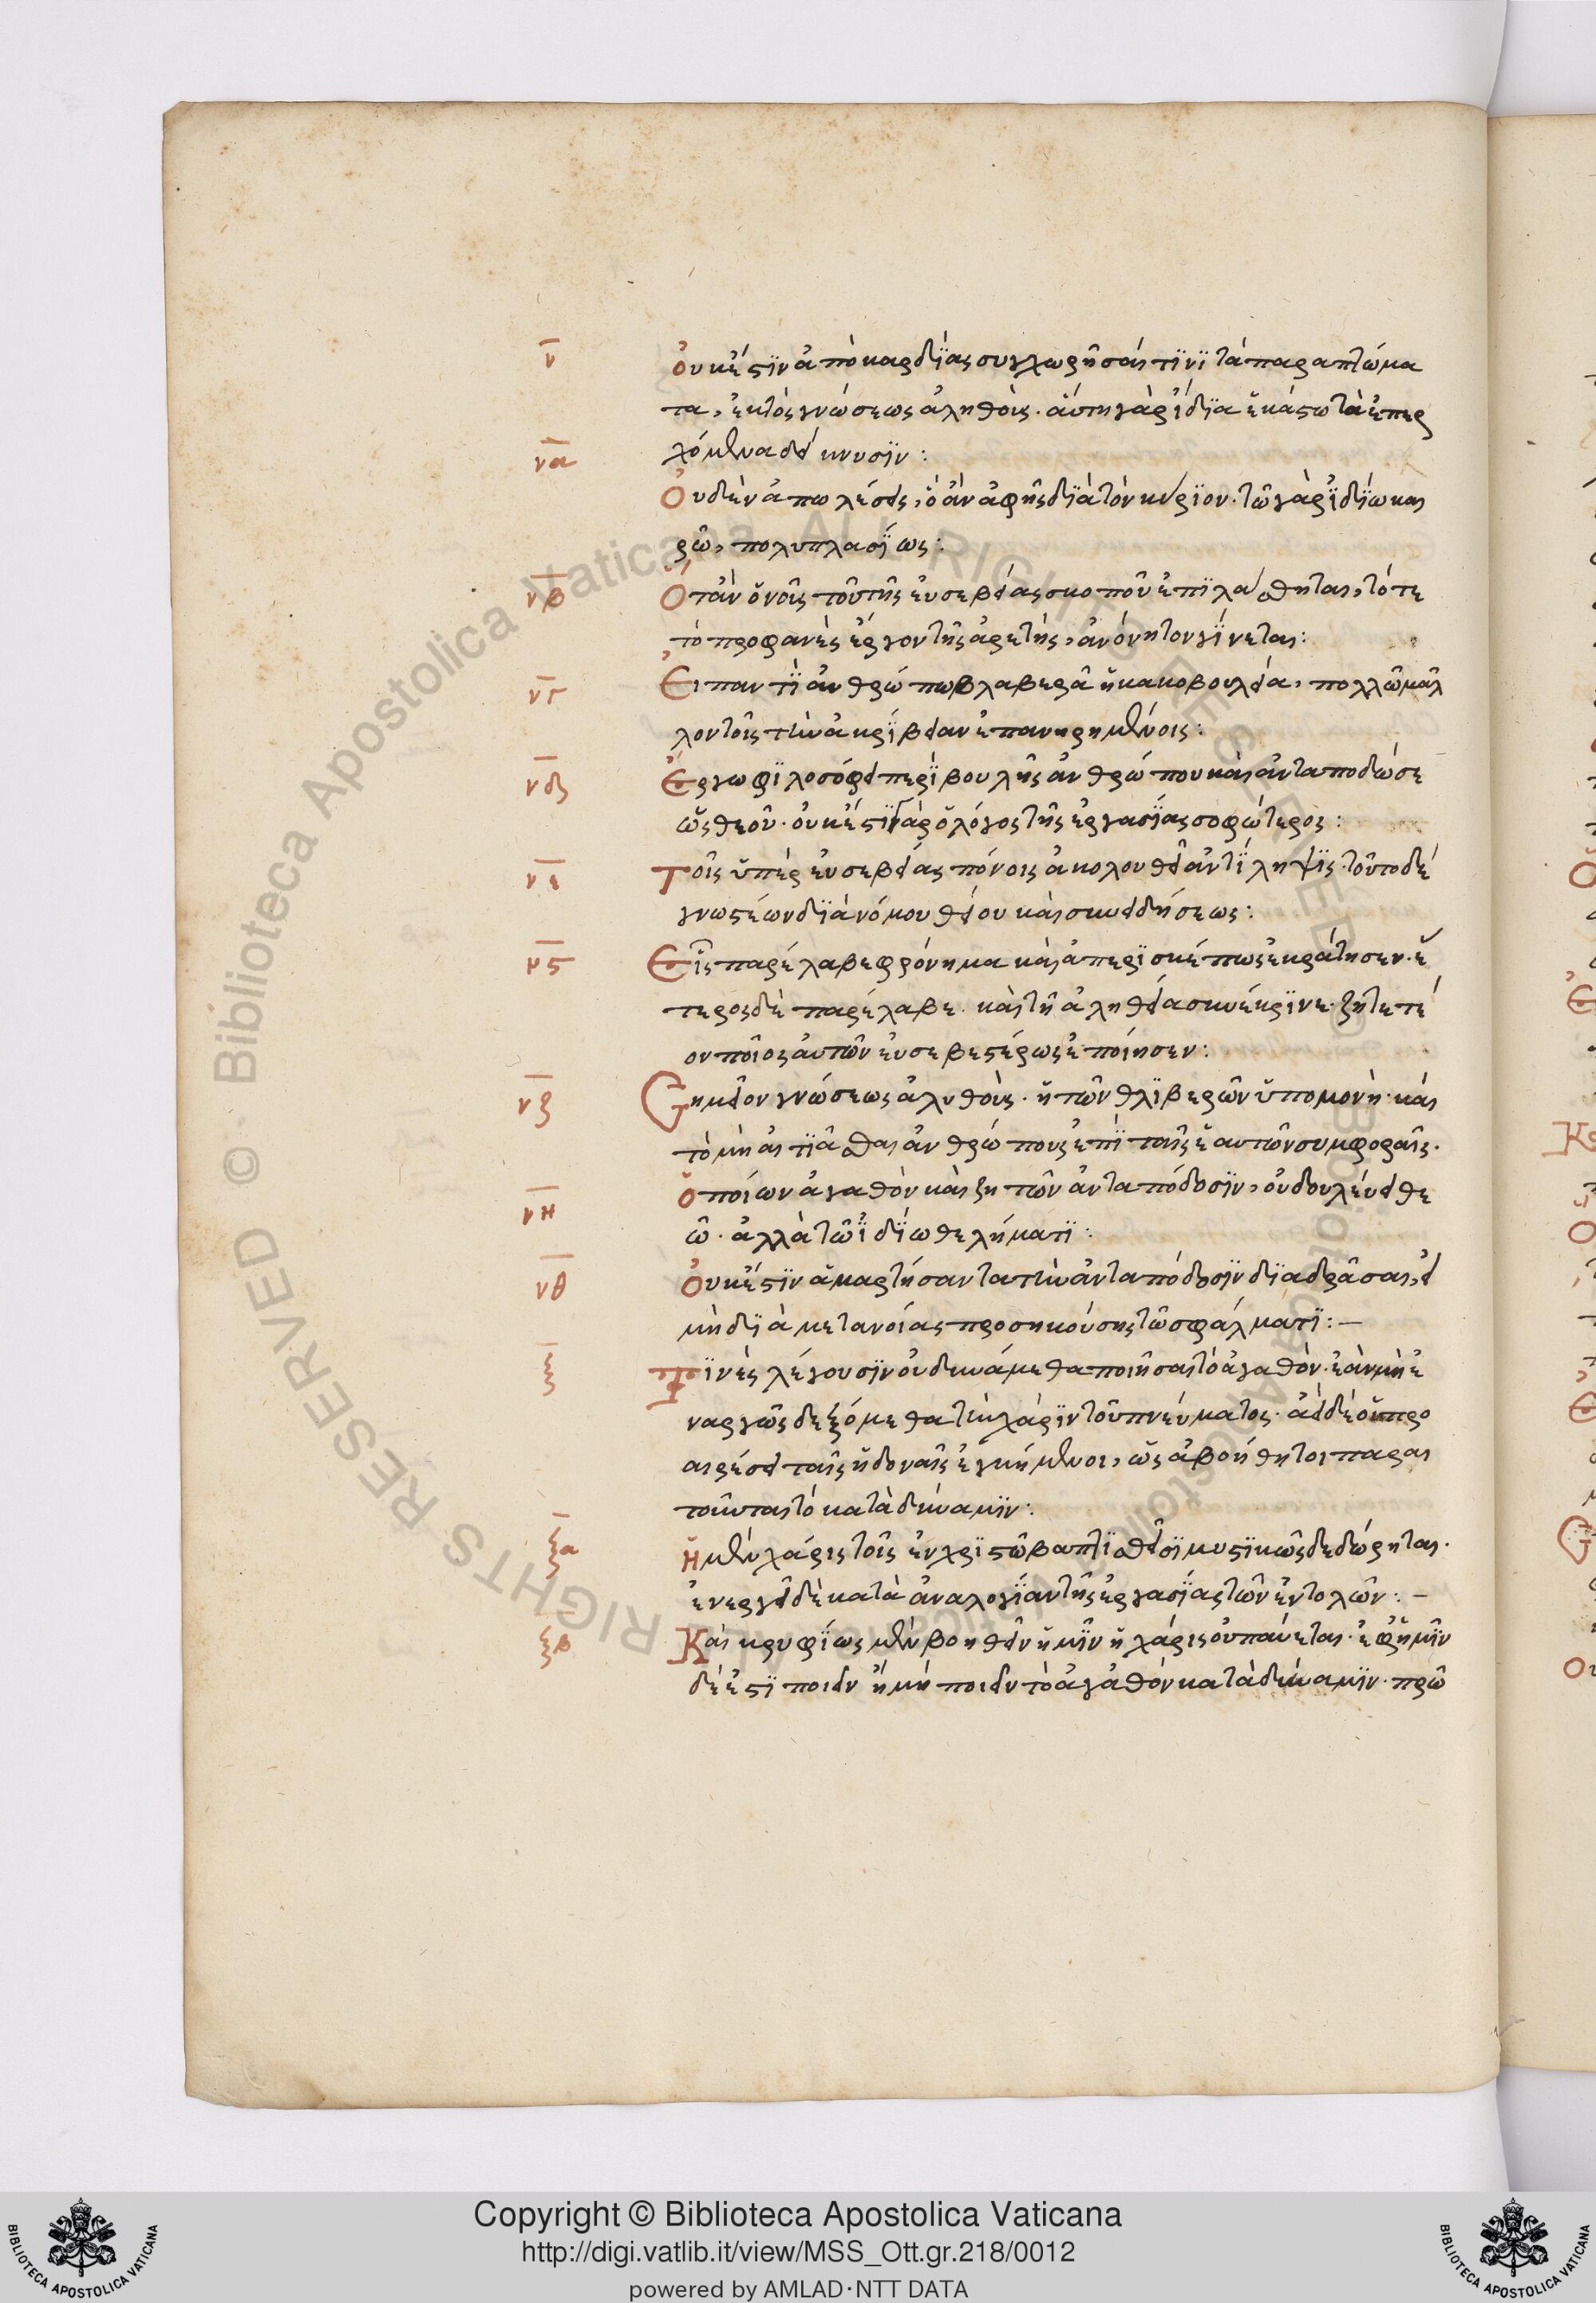 ν
οὐκ ἔστϊν ἀπὸ καρδΐας συγχωρῆσαι τϊνῒ τὰ παραπτώμα
τα, ἐκτὸς γνώσεως ἀληθοῦς. αὕτη γὰρ ἰδΐα ἑκάστω τὰ ἐπερ
να
χόμενα δείκνυσϊν:
Οὐδὲν ἀπωλέσεις, ὃ ἂν ἀφῆς δϊὰ τὸν κύρϊον. τῶ γὰρ ἰδΐω και
ρῶ, πολυπλασΐως:
νβ
Ὅταν ὁ νοῦς τοῦ τῆς εὐσεβείας σκοποῦ ἐπϊλάθηται, τότε
τὸ προφανὲς ἔργον τῆς ἀρετῆς, ἀνόνητον γΐνεται:
νγ
Εἰ παντῒ ἀνθρώπω βλαβερᾶ ἡ κακοβουλεία, πολλῶ μᾶλ
λον τοῖς τὴν ἀκρΐβειαν ἐπανηρημένοις:
νδ
Ἔργω φϊλοσόφει περῒ βουλῆς ἀνθρώπου καὶ ἀνταποδώσε
ως θεοῦ. οὐκ ἔστϊ γὰρ ὁ λόγος τῆς ἐργασΐας σοφώτερος:
νε
Τοῖς ὑπὲρ εὐσεβείας πόνοις ἀκολουθεῖ ἀντΐληψϊς. τοῦτο δέ
γνωστέων δϊὰ νόμου θείου καὶ συνειδήσεως:
νς
Εἷς παρέλαβε φρόνημα καὶ ἀπερϊσκέπως ἐκράτησεν. ἕ
τερος δὲ παρέλαβε. καὶ τῆ ἀληθεία συνέκρϊνε. ζητετέ
ον ποῖος αὐτῶν εὐσεβεστέρως ἐποίησεν:
νζ
Σημεῖον γνώσεως ἀλυθοῦς. ἡ τῶν θλϊβερῶν ὑπομονὴ. καὶ
τὸ μὴ αἰτϊᾶσθαι ἀνθρώπους ἐπῒ ταῖς ἑαυτῶν συμφοραῖς.
νη
ὁ ποίων ἀγαθὸν καὶ ζητῶν ἀνταπόδοσϊν, οὐ δουλέυει θε
ῶ. ἀλλὰ τῶ ἰδΐω θελήματϊ:
νθ
Οὐκ ἔστϊν ἁμαρτήσαντα τὴν ἀνταπόδοσϊν δϊαδρᾶσαι, εἰ
μὴ δϊὰ μετανοίας προσηκούσης τῶ σφάλματϊ: –
ξ
Τϊνὲς λέγουσϊν οὐ δυνάμεθα ποιῆσαι τὸ ἀγαθὸν. ἐὰν μὴ ἐ
ναργῶς δεξόμεθα τὴν χάρϊν τοῦ πνεύματος. ἀεὶ δὲ οἱ προ
αιρέσει ταῖς ἡδοναῖς ἐγκήμενοι, ὡς ἀβοήθητοι παραι
τοῦνται τὸ κατὰ δύναμϊν:
ξα
Ἡ μὲν χάρις τοῖς ἐν χρϊστῶ βαπτϊσθεῖσϊ μυστϊκῶς δεδώρηται.
ἐνεργεῖ δὲ κατὰ ἀναλογΐαν τῆς ἐργασΐας τῶν ἐντολῶν: –
ξβ
Καὶ κρυφΐως μὲν βοηθεῖν ἡμῖν ἡ χάρις οὐ παύεται. ἐφ' ἡμῖν
δὲ ἐστϊ ποιεῖν ἢ μὴ ποιεῖν τὸ ἀγαθὸν κατὰ δύναμϊν. πρῶ
Copyright © Biblioteca Apostolica Vaticana
http://digi.vatlib.it/view/MSS_Ott.gr.218/0012
powered by AMLAD·NTT DATA